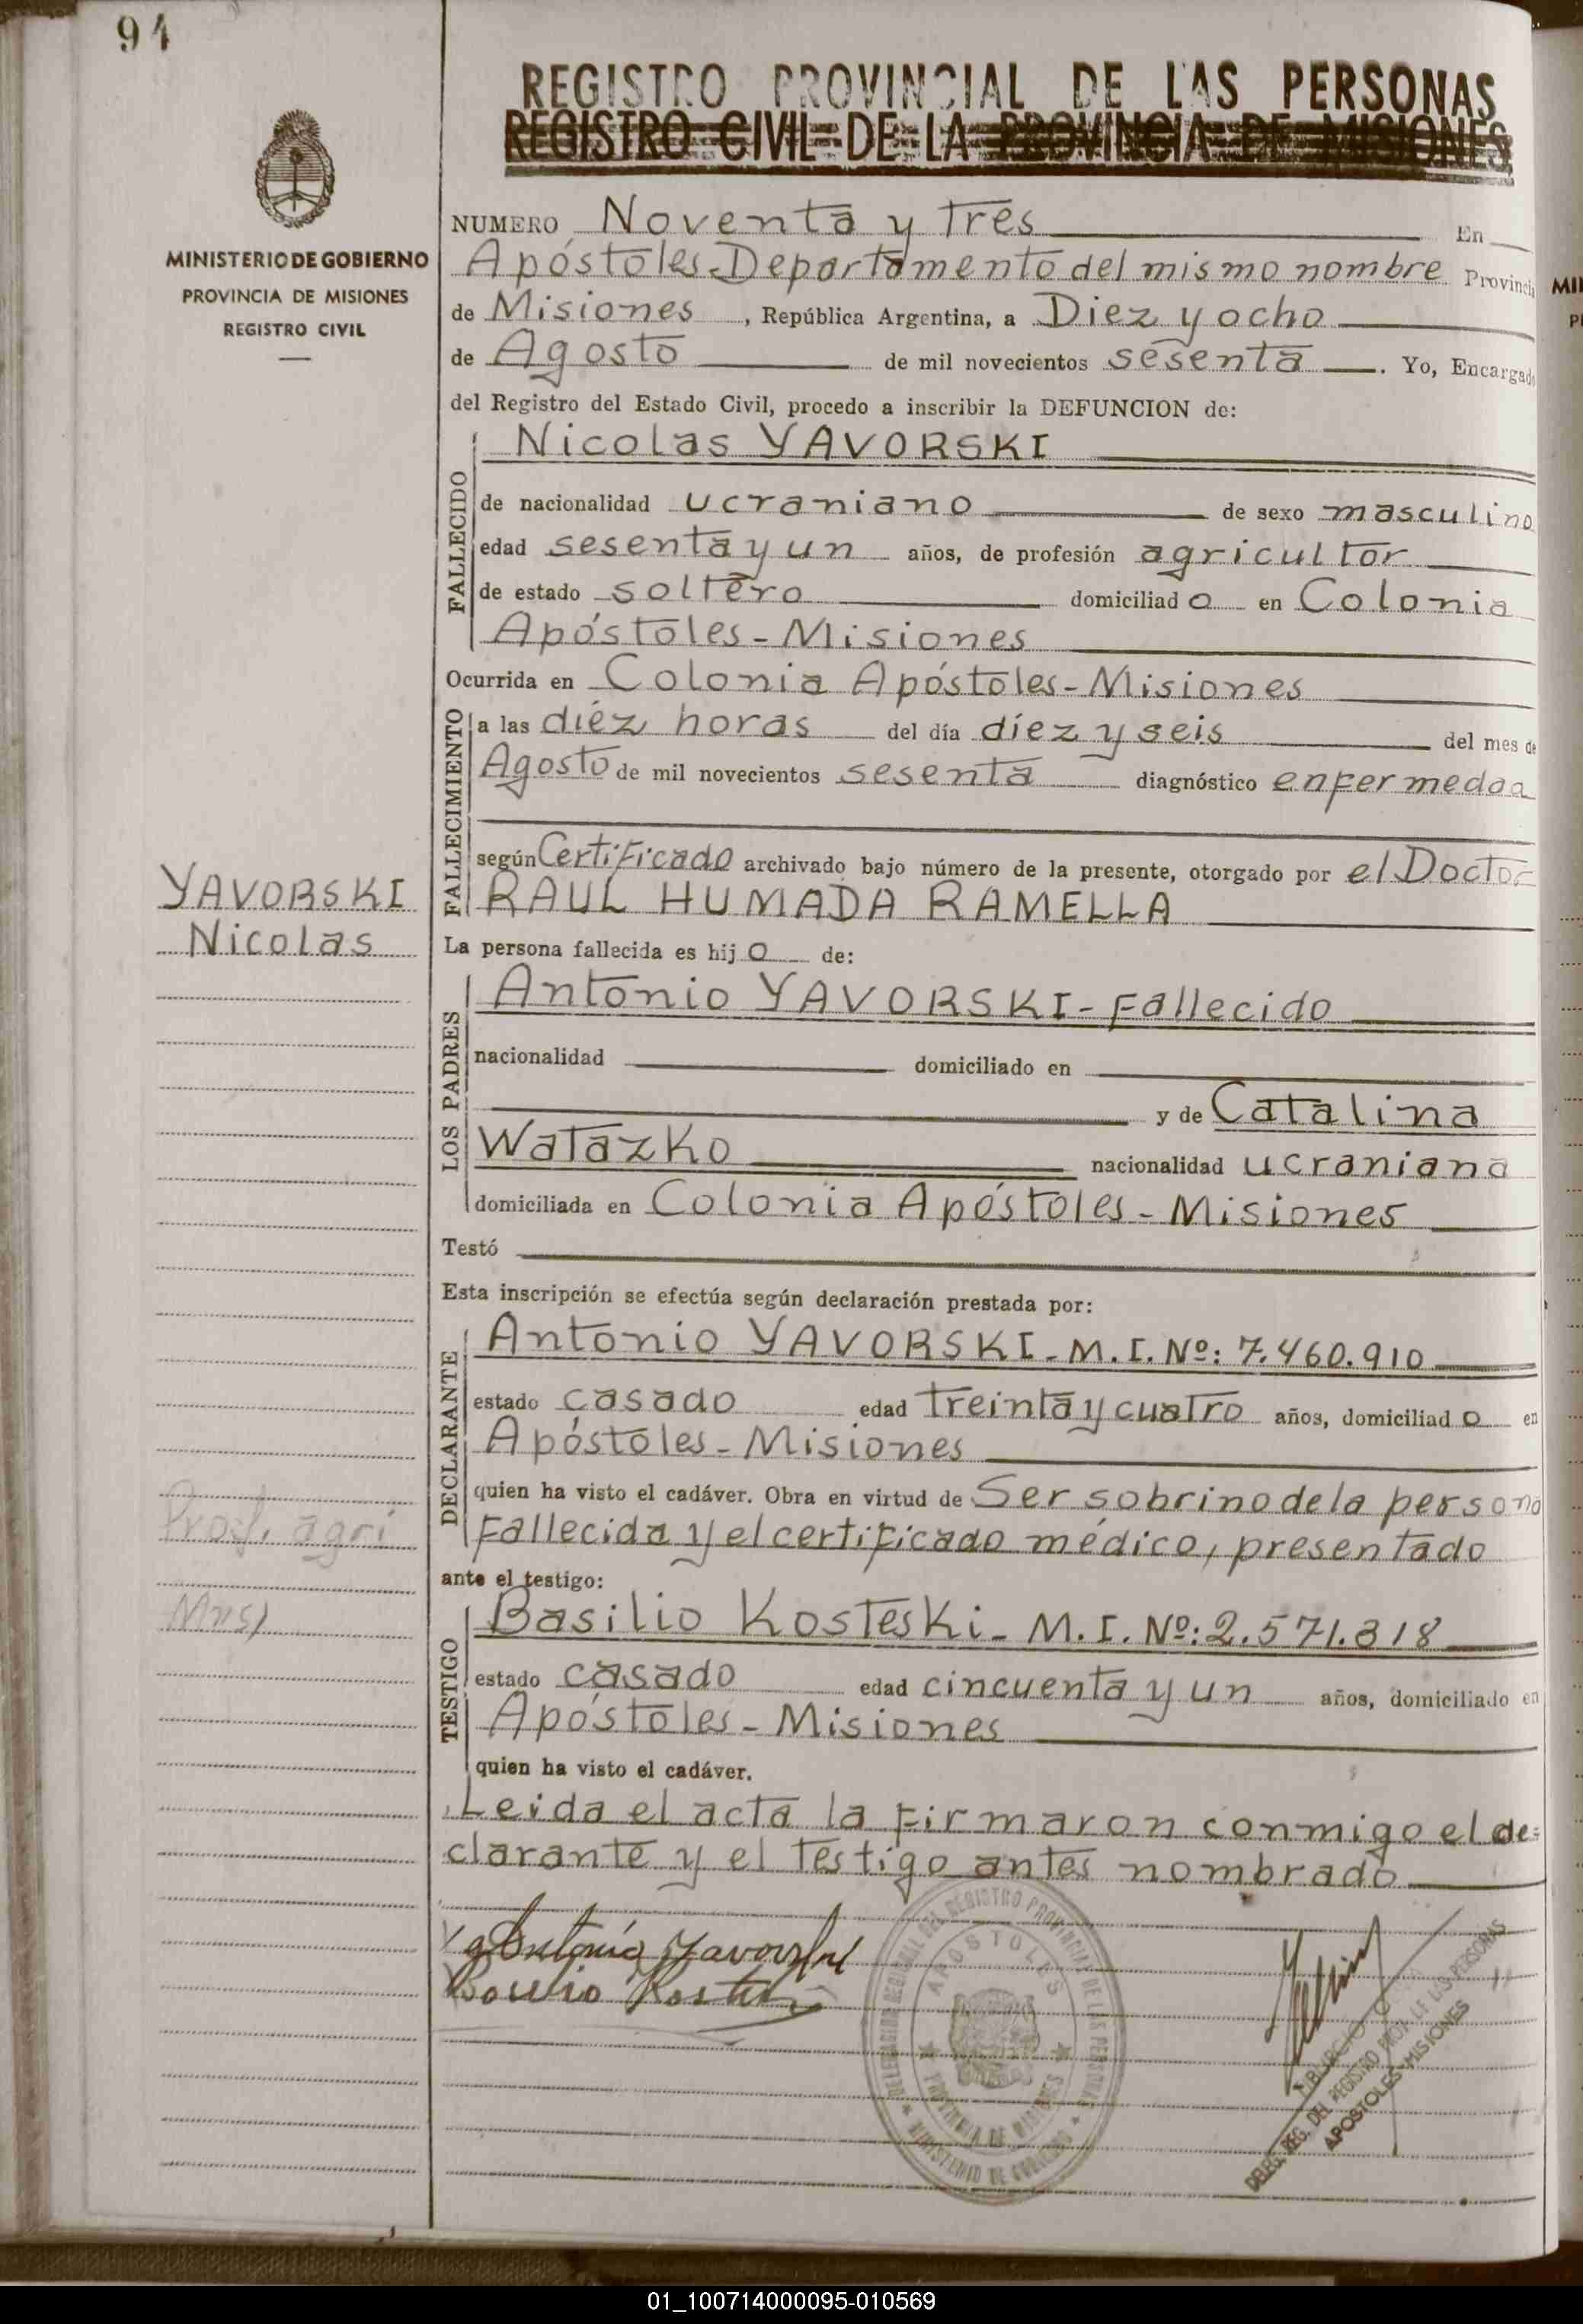 94
REGISTRO PROVINCIAL DE LAS PERSONAS
REGISTRO CIVIL DE LA PROVINCIA DE MISIONES
MINISTERIO DE GOBIERNO
PROVINCIA DE MISIONES
REGISTRO CIVIL
NUMERO Noventa y Tres En
Apóstoles-Departamento del mismo nombre Provincia
de Misiones, República Argentina, a Diez y ocho
de Agosto de mil novecientos sesenta. Yo, Encargado
del Registro del Estado Civil, procedo a inscribir la DEFUNCION de:
FALLECIDO
Nicolas YAVORSKI
de nacionalidad ucraniano de sexo masculino
edad sesenta y un años, de profesión agricultor
de estado soltero domiciliado en Colonia
Apóstoles-Misiones
FALLECIMIENTO
Ocurrida en Colonia Apóstoles-Misiones
a las diéz horas del día díez y seis del mes de
Agosto de mil novecientos sesenta diagnóstico enfermedad
según Certificado archivado bajo número de la presente, otorgado por el Doctor
RAUL HUMADA RAMELLA
YAVORSKI
Nicolas
La persona fallecida es hijo de:
LOS PADRES
Antonio YAVORSKI-Fallecido
nacionalidad domiciliado en
y de Catalina
Watazko nacionalidad ucraniana
domiciliada en Colonia Apóstoles-Misiones
Testó
Esta inscripción se efectúa según declaración prestada por:
DECLARANTE
Antonio YAVORSKI-M.I.Nº: 7.460.910
estado casado edad treinta y cuatro años, domiciliado en
Apóstoles-Misiones
quien ha visto el cadáver. Obra en virtud de Ser sobrino de la persona
Fallecida y el certificado médico, presentado
Prof. agri
ante el testigo:
TESTIGO
Basilio Kosteski-M.I.Nº: 2.571.318
estado casado edad cincuenta y un años, domiciliado en
Apóstoles-Misiones
quien ha visto el cadáver.
Leida el acta la firmaron conmigo el de=
clarante y el testigo antes nombrado
Antonio Yavorski
DELEGACION REGIONAL DEL REGISTRO PROVINCIAL DE LAS PERSONAS
APOSTOLES
PROVINCIA DE MISIONES
MINISTERIO DE GOBIERNO
DELEG. REG. DEL REGISTRO PROV. DE LAS PERSONAS
APOSTOLES-MISIONES
01_100714000095-010569